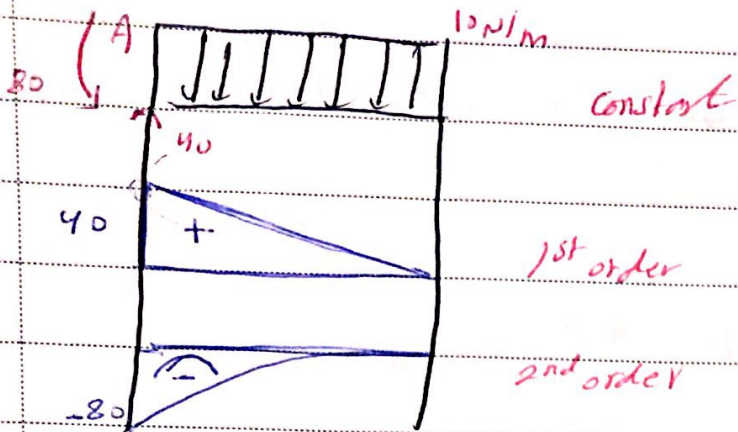 A 10 N/m
80 constant
40
40 + 1st order
- 2nd order
-80